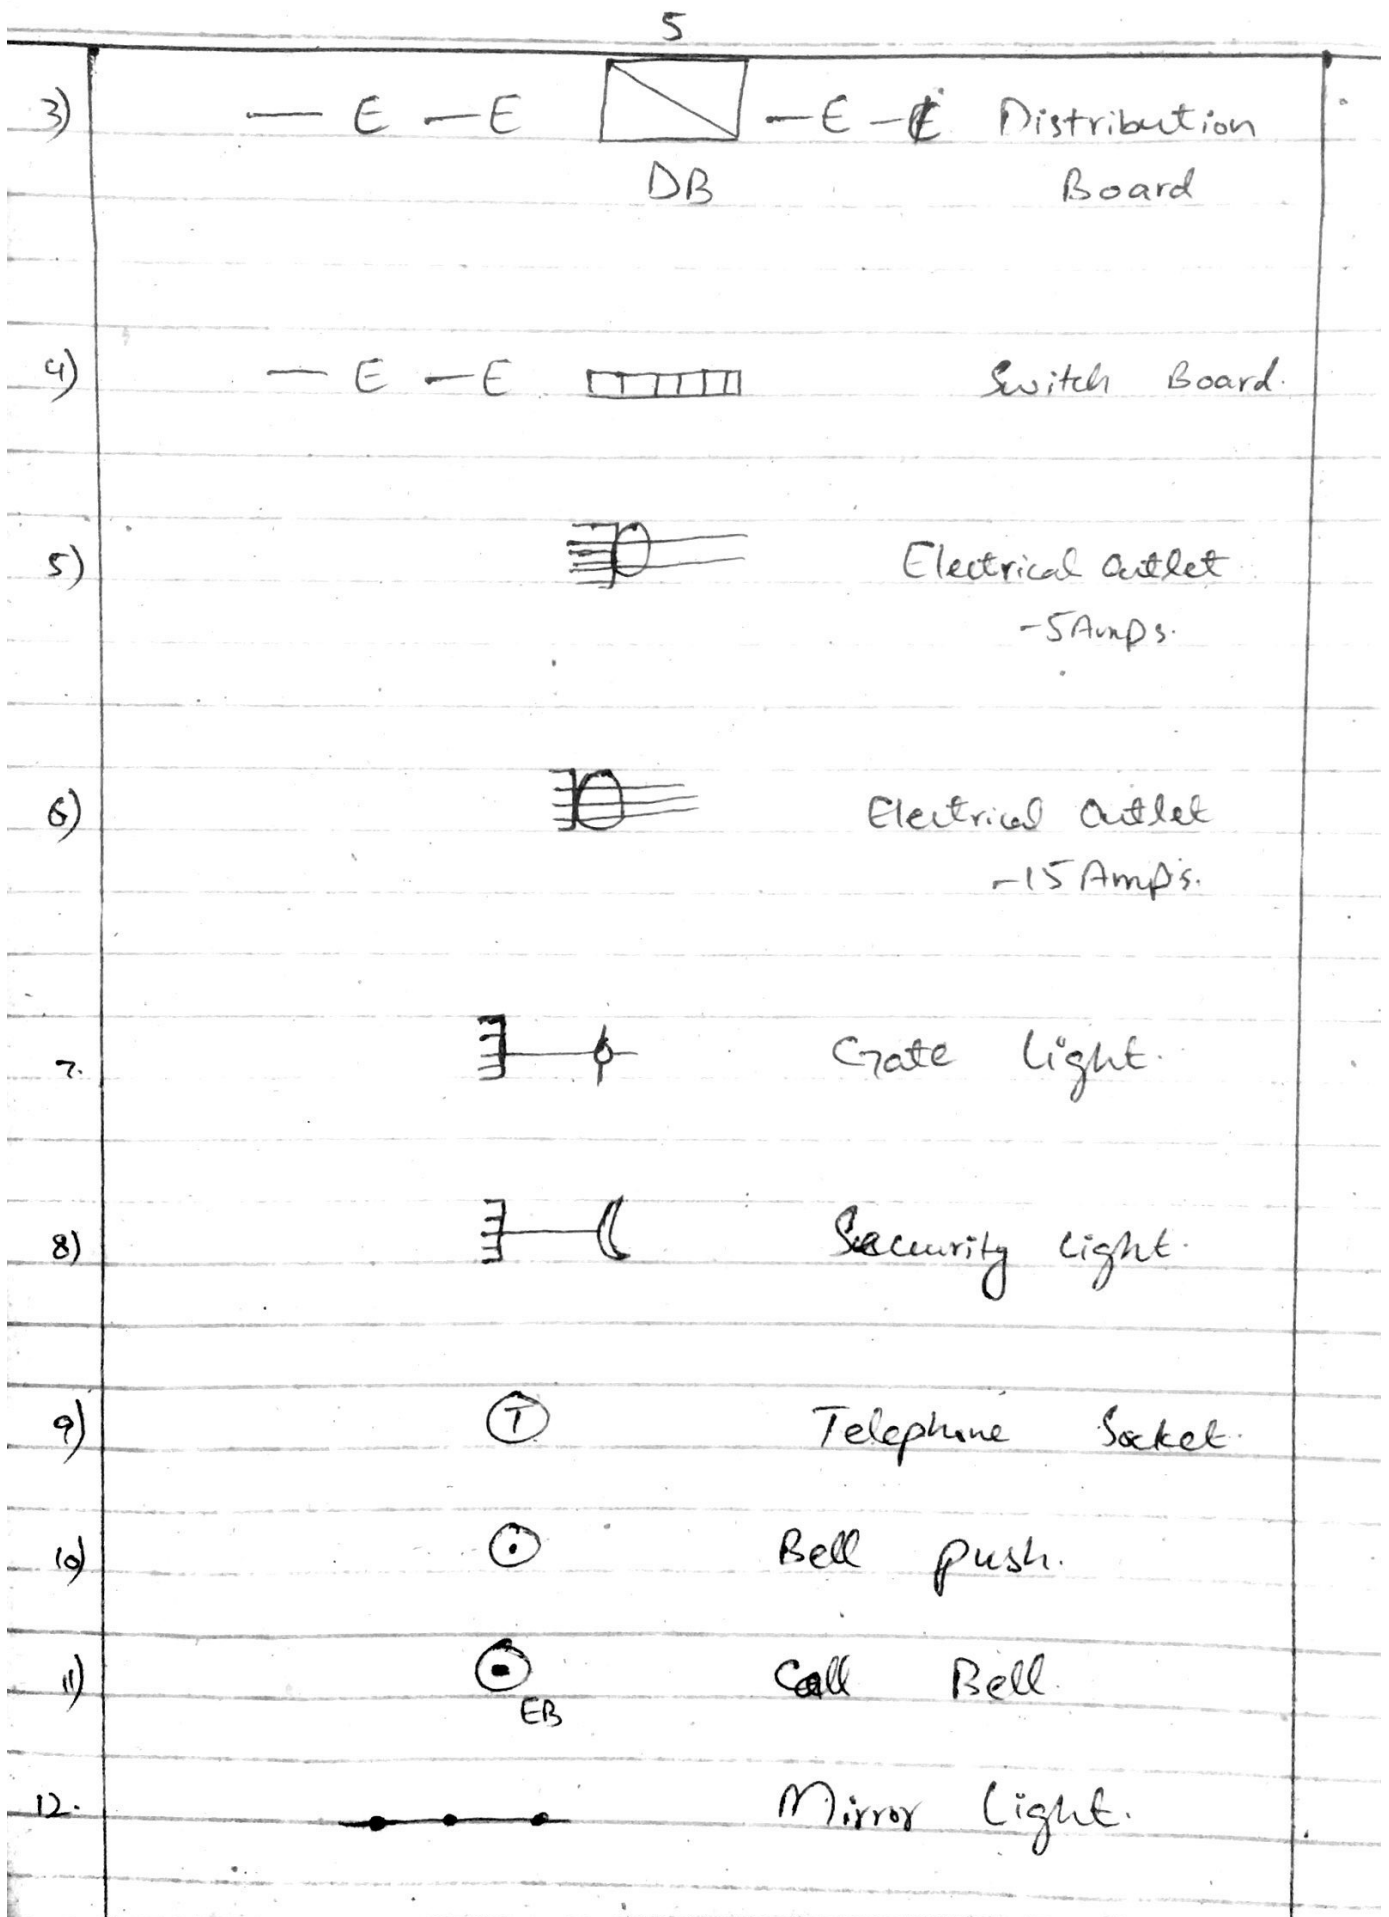 5
3) — E — E — E — E Distribution
DB Board
4) — E — E Switch Board.
5) Electrical Outlet
-5 Amps.
6) Electrical Outlet
-15 Amps.
7. Gate light.
8) Security light.
9) T Telephone Socket.
10) Bell push.
11) Call Bell.
EB
12. Mirror light.